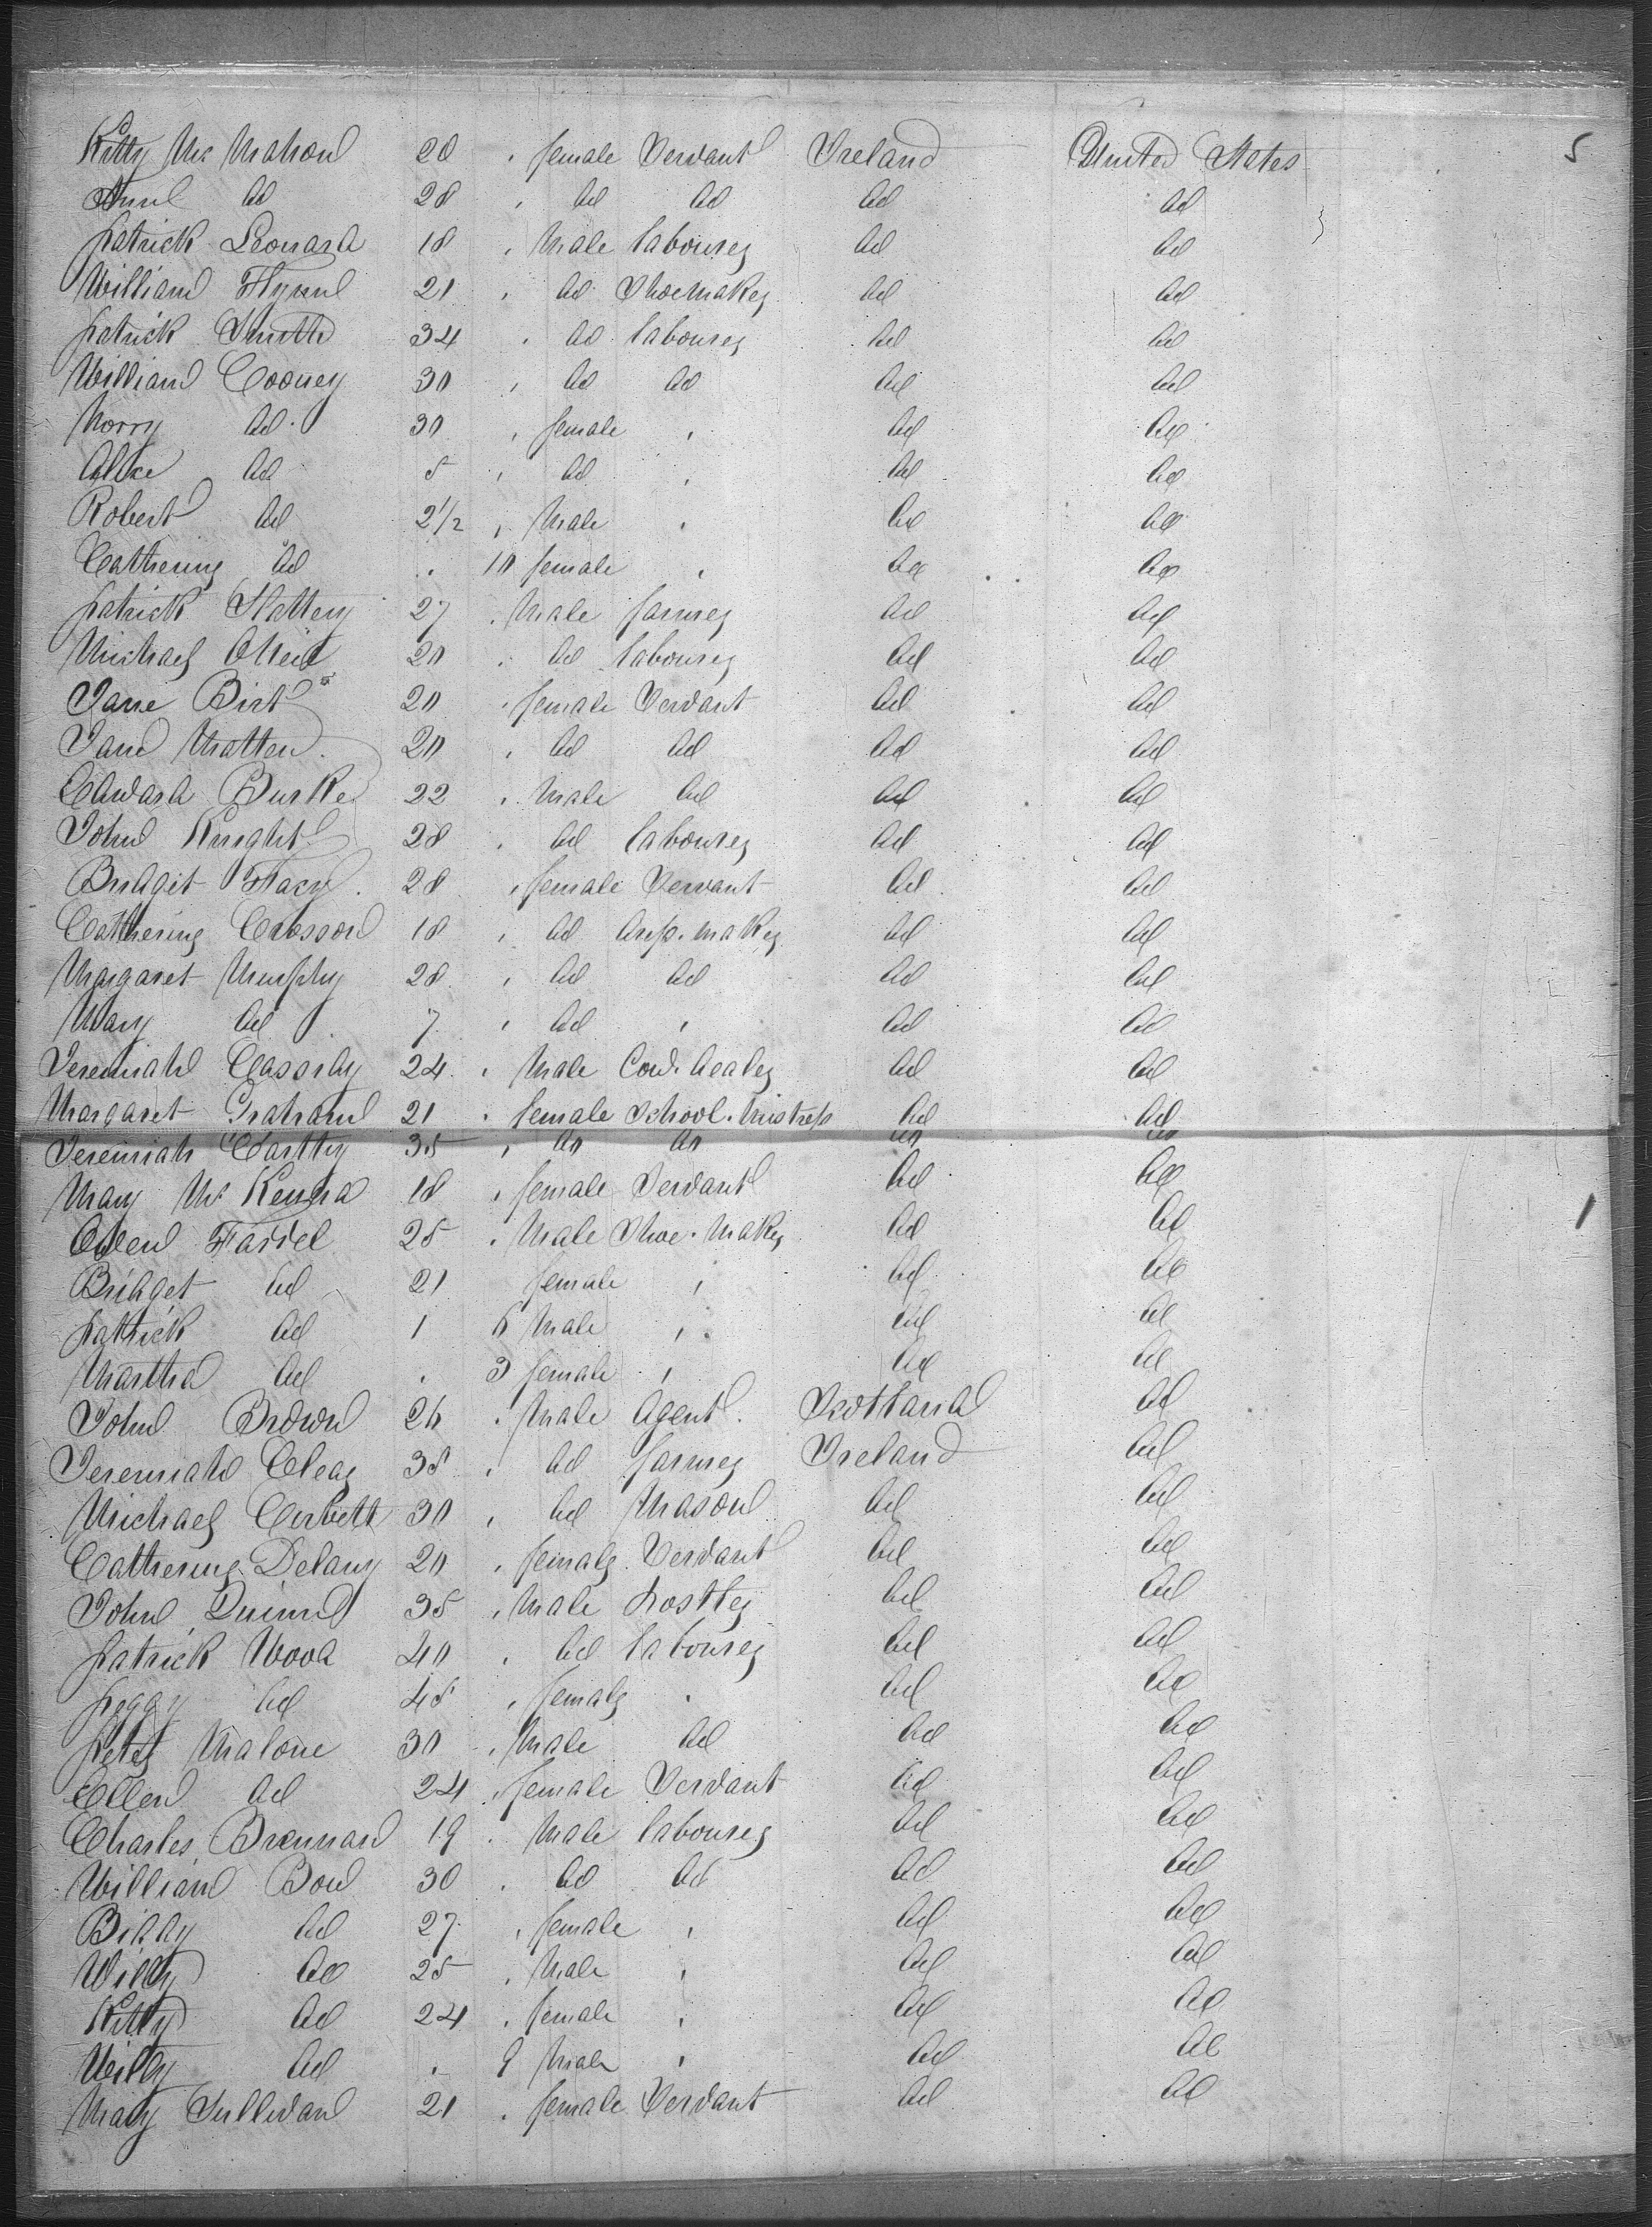 Kitty Mc Mahon 20 , female Servant Ireland United States 5
Ann do 28 , do do do do
Patrick Leonard 18 , Male labourer do do
William Flynn 21 , do Shoemaker do do
Patrick Smith 34 , do labourer do do
William Cooney 30 , do do do do
Norry do 30 , female , do do
Alice do 5 , do , do do
Robert do 2 1/2 , Male , do do
Catherine do . 10 female , do do
Patrick Slattery 27 , Male farmer do do
Michael 20 , do labourer do do
Jane Birt 20 , female Servant do do
Jane Matten 20 , do do do do
Edward Burke 22 , Male do do do
John Knight 28 , do labourer do do
Bridget 28 , female Servant do do
Catherine Crosson 18 , do dress-maker do do
Margaret Murphy 28 , do do do do
Mary do 7 , do , do do
Jeremiah Cassidy 24 , Male Cow-dealer do do
Margaret Graham 21 , female School-Mistress do do
Jeremiah Cartty 35 , do do do do
Mary Mc Kenna 18 , female Servant do do
Owen Farrel 25 , Male Shoe-Maker do do 1
Bridget do 21 female , do do
Patrick do 1 6 Male , do do
Martha do . 3 female , do do
John Brown 26 , Male Agent Scotland do
Jeremiah Clear 38 , do farmer Ireland do
Michael Corbett 30 , do Mason do do
Catherine Delany 20 , female Servant do do
John Quinn 35 , Male hostler do do
Patrick Wood 40 , do labourer do do
Peggy do 45 , female , do do
Peter Malone 30 , Male do do do
Ellen do 24 , female Servant do do
Charles Brennan 19 , Male labourer do do
William Bow 30 , do do do do
Biddy do 27 , female , do do
Willy do 25 , Male , do do
Kitty do 24 , female , do do
Willy do . 9 Male , do do
Mary Sullivan 21 , female Servant do do